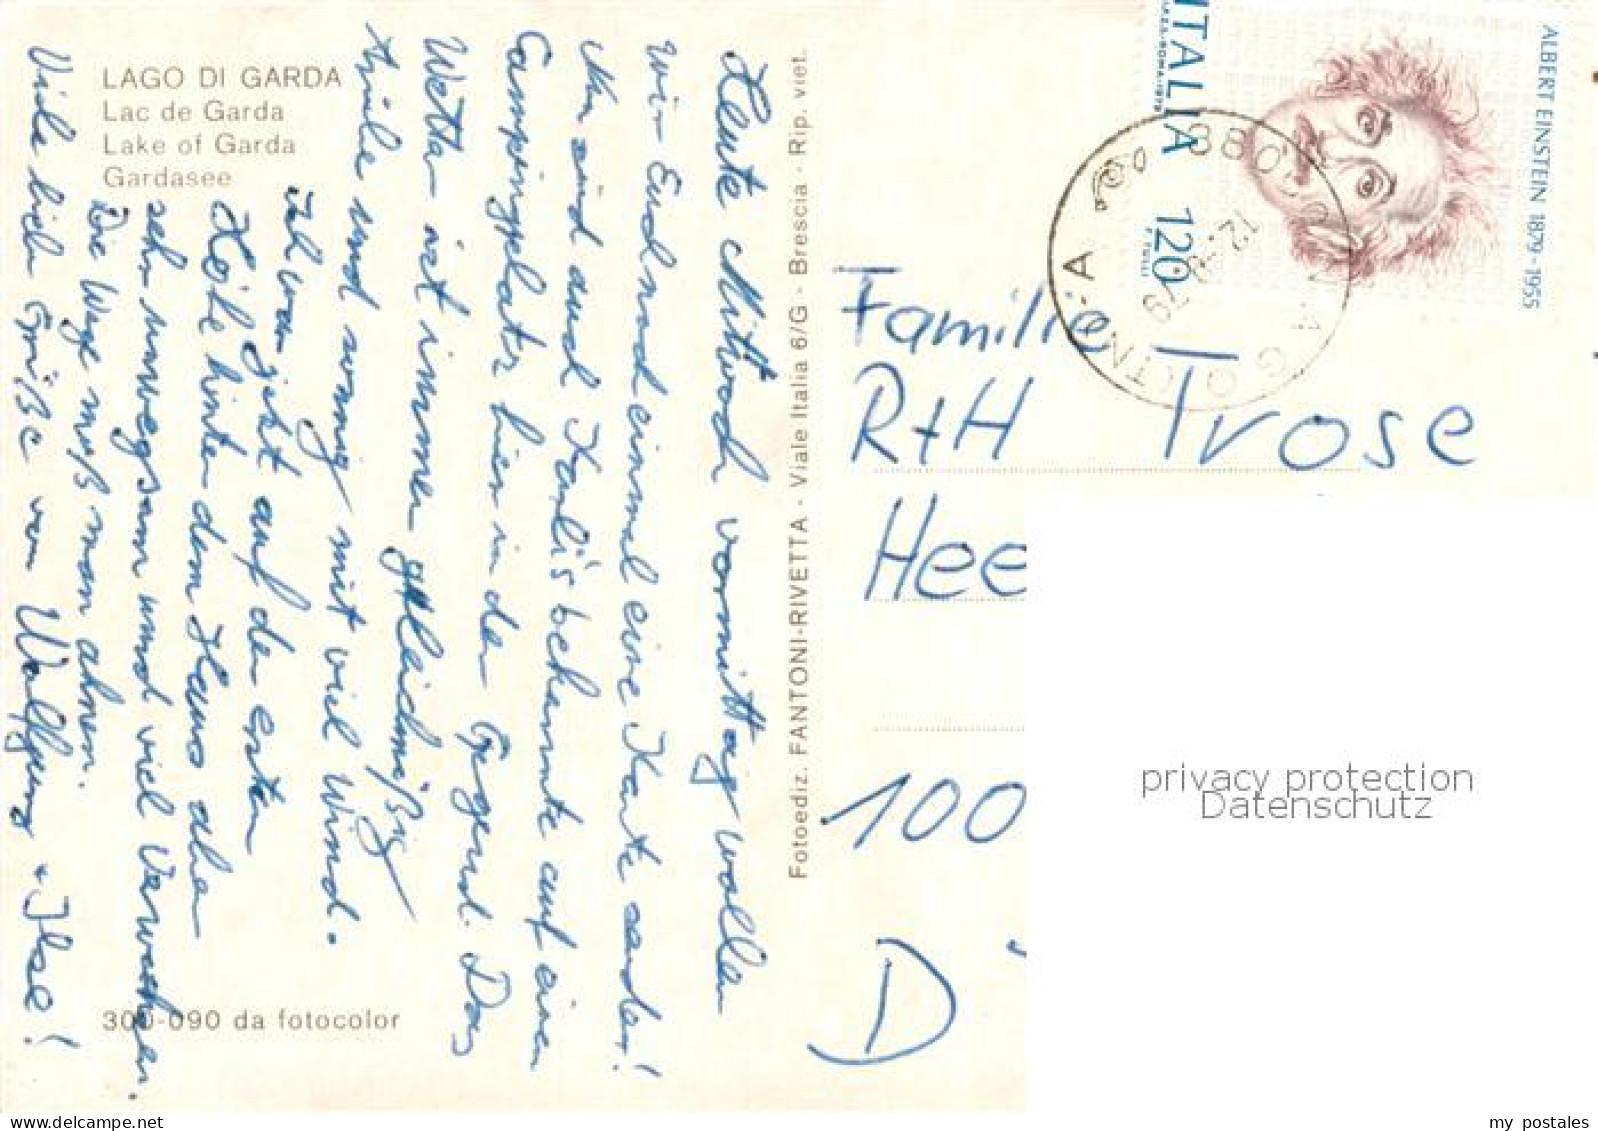 LAGO DI GARDA
Lac de Garda
Lake of Garda
Gardasee
Heute Mittwoch vormittag wollen
wir Euch noch einmal eine Karte senden!
Wir sind auf Karli's bekannte auf einen
Campingplatz hier in der Gegend. Das
Wetter ist immer gleichmäßig
kühle und sonnig mit viel Wind.
Ich war jetzt auf der ersten
Höhe hinter dem Haus aber
sehr unwegsam und viel Verwachsen.
Die Wege muß man ahnen.
Viele liebe Grüße von Wolfgang + Ilse!
300-090 da fotocolor
Fotoediz. FANTONI-RIVETTA - Viale Italia 6/G - Brescia - Rip. viet.
ITALIA 120
I.P.Z.S.-ROMA-1979
ALBERT EINSTEIN 1879-1955
380
12 79
Familie
R+H Trose
Hee
100
D
privacy protection
Datenschutz
my postales